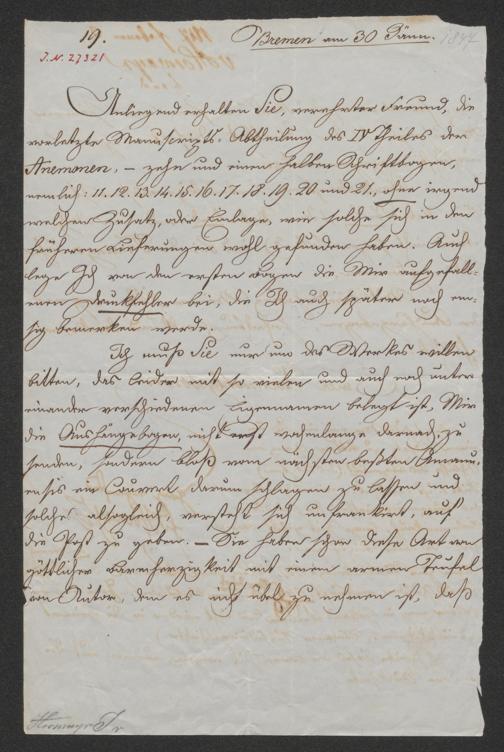 19.
Bremen am 30 Jänn. 1847
J.N. 27321
Anliegend erhalten Sie, verehrter Freund, die
vorletzte Manuscripts-Abtheilung des IV Theiles der
Anemonen, – zehn und einen halben Schriftbogen,
nemlich: 11. 12. 13. 14. 15. 16. 17. 18. 19. 20 und 21, ohne irgend
welchen Zusatz, oder Einlage, wie solche sich in den
früheren Lieferungen wohl gefunden haben. Auch
lege Ich von den ersten Bogen die Mir aufgefall-
enen Druckfehler bei, die Ich auch später noch em-
sig bemerken werde.
Ich muß Sie nur um des Werkes willen
bitten, das leider mit so vielen und auch noch unter
einander verschiedenen Eigennamen belegt ist, Mir
die Aushängebogen, nicht erst wochenlange darnach, zu
senden, sondern bloß vom nächsten beßten Amanu-
ensis ein Couvert darum schlagen zu lassen und
solche alsogleich, versteht sich unfrankirt, auf
die Post zu geben. – Sie haben schon diese Art von
göttlicher Barmherzigkeit mit einem armen Teufel
von Autor, dem es nicht übel zu nehmen ist, daß
Hormayr Jr